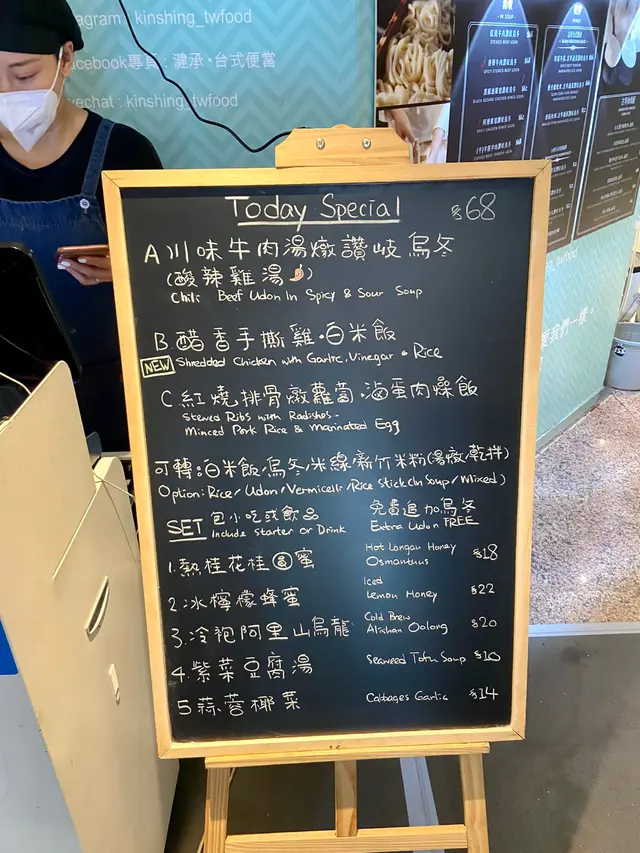 agram : kinshing_twfood
acebook專頁 : 瀽承·台式便當
echat : kinshing_twfood
Today Special $68
A 川味牛肉湯燉讚岐烏冬
(酸辣雞湯🌶)
Chili Beef Udon In Spicy & Sour Soup
B 醋香手撕雞·白米飯
NEW Shredded Chicken with Garlic, Vinegar & Rice
C 紅燒排骨燉蘿蔔·滷蛋肉燥飯
Stewed Ribs with Radishes -
Minced Pork Rice & Marinated Egg
可轉:白米飯/烏冬/米線/新竹米粉(湯燉/乾拌)
Option: Rice / Udon / Vermicelli / Rice Stick (In Soup / Mixed)
SET 包小吃或飲品 免費追加烏冬
Include Starter or Drink Extra Udon FREE
1. 熱桂花桂圓蜜 Hot Longan Honey Osmanthus $18
2. 冰檸檬蜂蜜 Iced Lemon Honey $22
3. 冷袍阿里山烏龍 Cold Brew Alishan Oolong $20
4. 紫菜豆腐湯 Seaweed Tofu Soup $10
5 蒜蓉椰菜 Cabbages Garlic $14